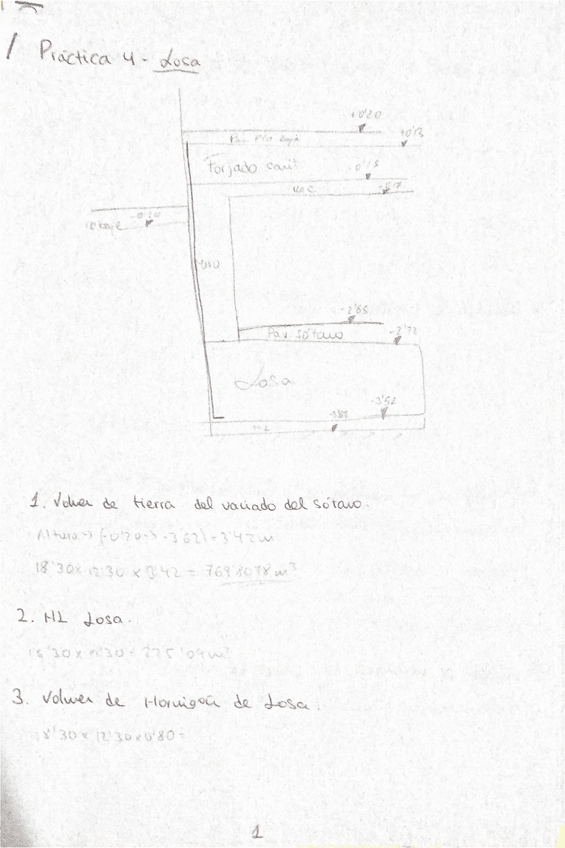 Práctica 4 - Losa
+0'20
+0'13
Forjado sanit
-0'20
MURO
-2'65
Pav Sótano
-2'72
Losa
-3'52
HL
1. Volumen de tierra del vaciado del sótano.
Altura → (-0'20 → -3'62) = 3'42 m
18'30 x 12'30 x 3'42 = 769'8078 m³
2. HL Losa.
18'30 x 12'30 = 225'09 m²
3. Volumen de Hormigón de Losa.
18'30 x 12'30 x 0'80 =
1